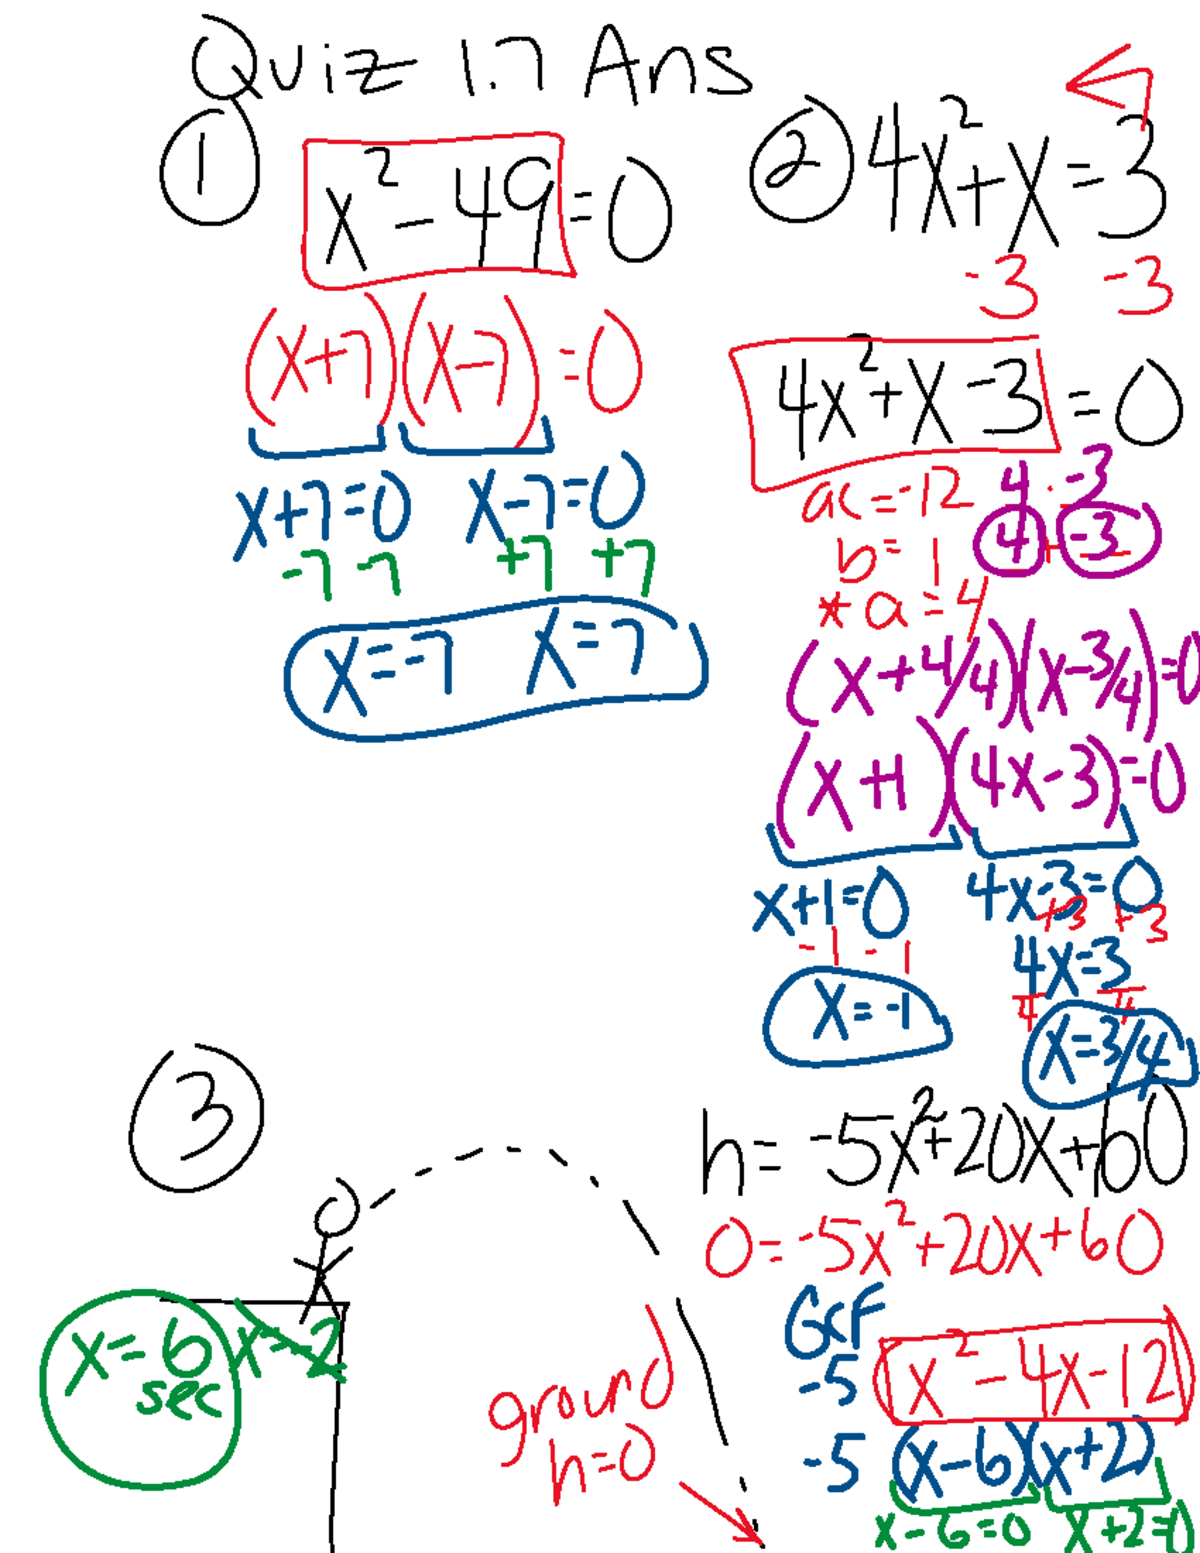 Quiz 1.7 Ans
① x² - 49 = 0
(x+7)(x-7) = 0
x+7=0 x-7=0
-7 -7 +7 +7
x=-7 x=7
② 4x²+x=3
-3 -3
4x²+x-3 = 0
ac=-12 4 · -3
b= 1 4 + -3
* a=4
(x+4/4)(x-3/4)=0
(x+1)(4x-3)=0
x+1=0 4x-3=0
-1 -1 +3 +3
4x=3
4 4
x=-1 x=3/4
③
h= -5x²+20x+60
0=-5x²+20x+60
GCF
-5 (x²-4x-12)
-5 (x-6)(x+2)
x-6=0 x+2=0
x=6 x=-2
sec
ground
h=0